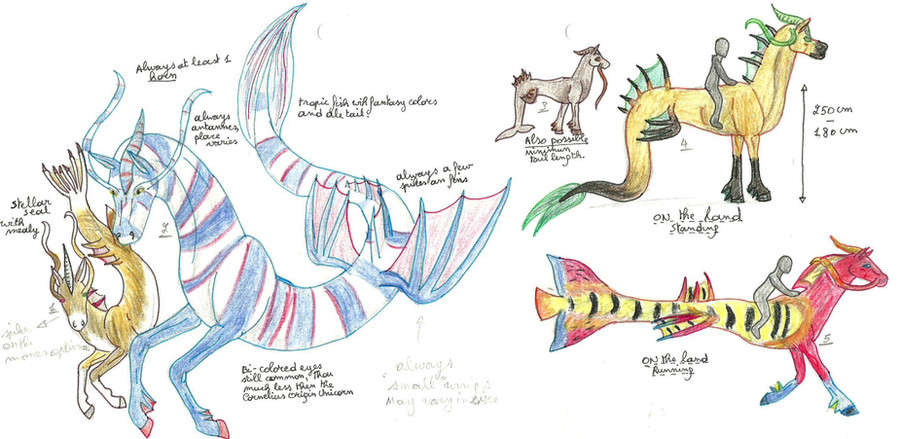 Always at least 1
horn
always
antannes,
place
varies
tropic fish with fantasy colors
and dle tail?
always a few
spikes an fins
Stellar
seal
with
mealy
1
spikes
on the
manes optional
2
Bi-colored eyes
still common, Thou
much less then the
Cornelius Origin Unicorn
always
"small" wings
May vary in size
3
Also possible
minimum
tail length.
4
250 cm
-
180 cm
ON the land
Standing
5
ON the land
Running